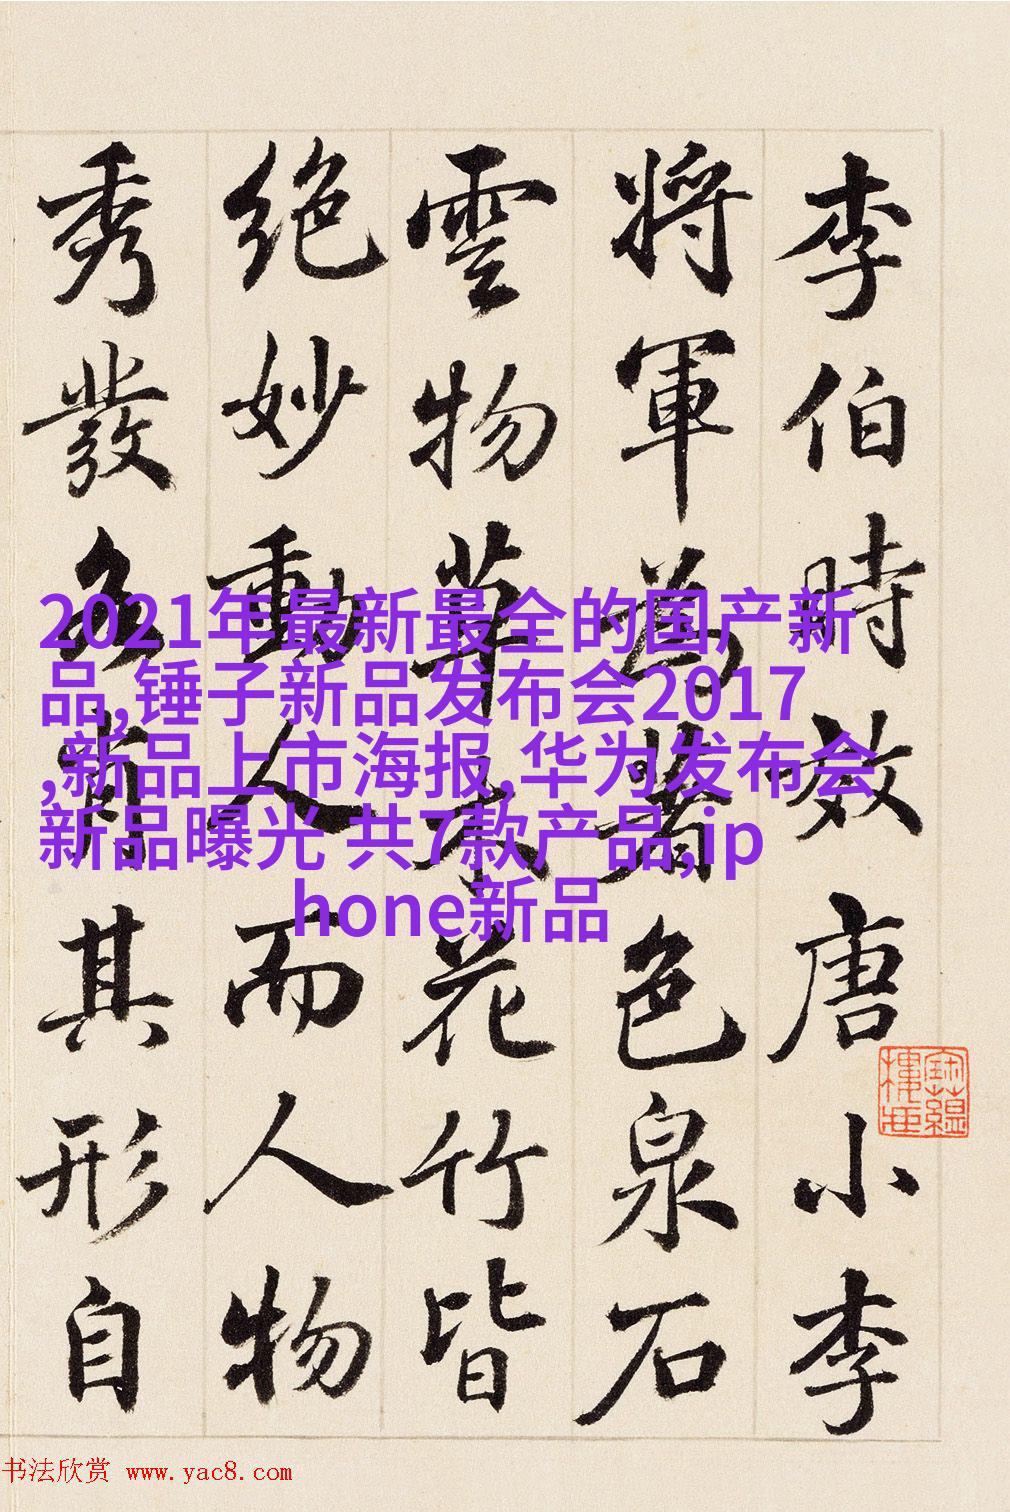 李伯時效唐小李
將軍爲著色泉石
雲物草木花竹皆
絶妙動人而人物
秀發各肖其形自
2021年最新最全的国产新
品,锤子新品发布会2017
,新品上市海报,华为发布会
新品曝光 共7款产品,ip
hone新品
书法欣赏 www.yac8.com